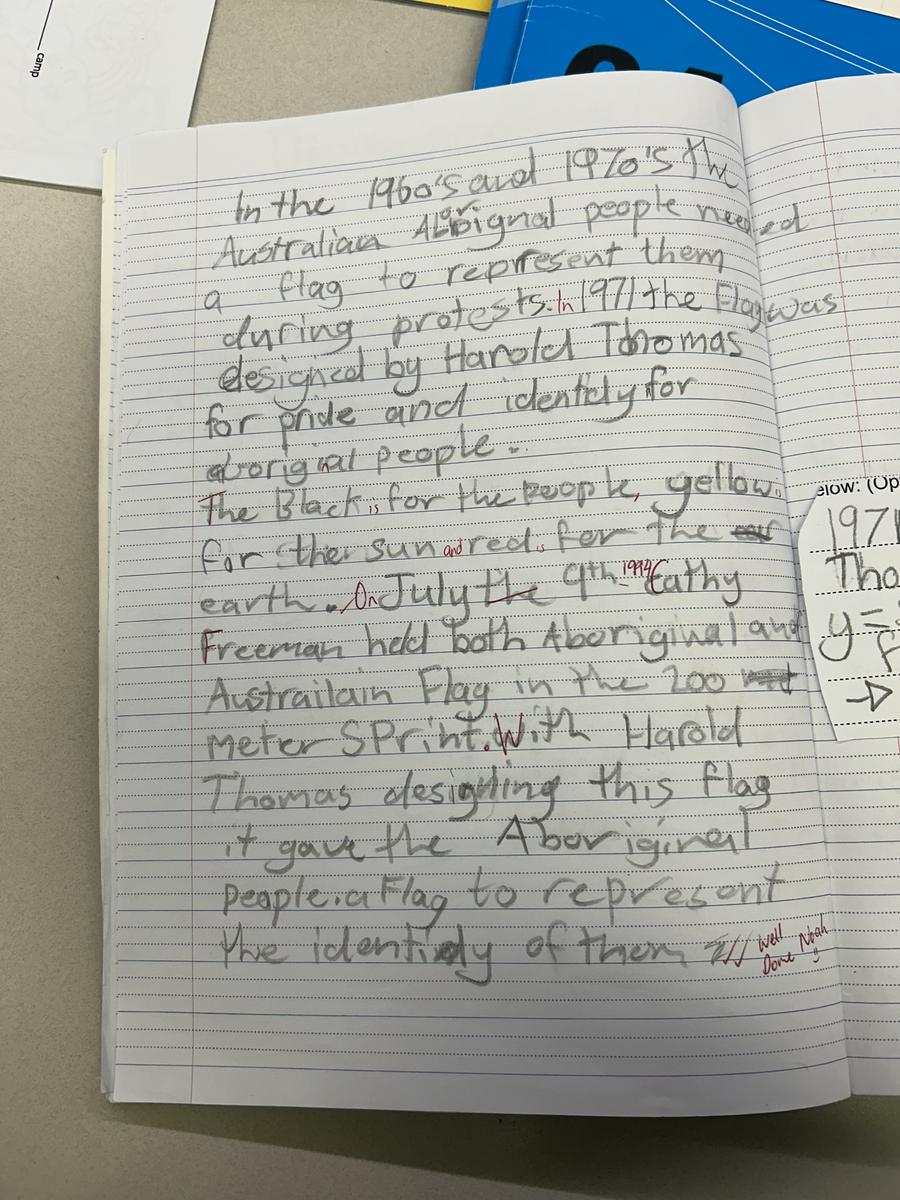 camp
In the 1960's and 1970's the
Australian Aborignal people needed
a flag to represent them
during protests. In 1971 the Flag was
designed by Harold Thomas
for pride and identidy for
aboriginal people.
The Black is for the people, yellow
for the sun and red is for the
earth. On July the 9th 1994 Cathy
Freeman held both Aboriginal and
Austrailain Flag in the 200
meter SPrint. With Harold
Thomas designing this flag
it gave the Aboriginal
people. a Flag to represent
the identidy of them
Well Done Noah
elow: (Op
1971
Tho
y=